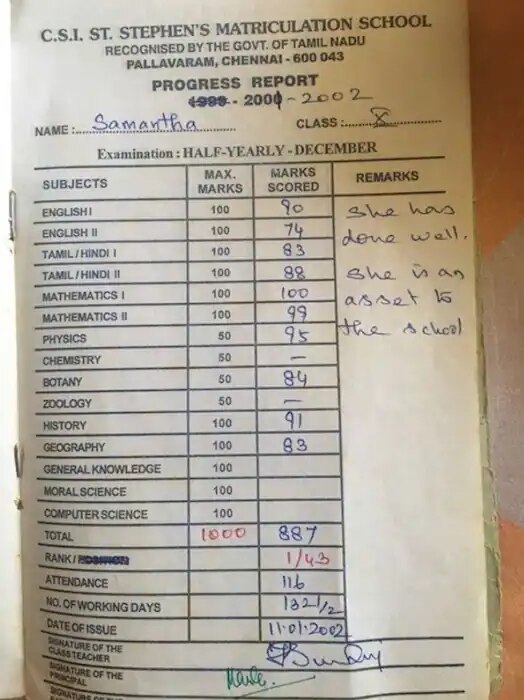 C.S.I. ST. STEPHEN'S MATRICULATION SCHOOL
RECOGNISED BY THE GOVT. OF TAMIL NADU
PALLAVARAM, CHENNAI - 600 043
PROGRESS REPORT
1999 - 2001 - 2002
NAME : Samantha CLASS : X
Examination : HALF-YEARLY - DECEMBER
SUBJECTS MAX. MARKS MARKS SCORED REMARKS
ENGLISH I 100 90 She has
ENGLISH II 100 74 done well.
TAMIL / HINDI I 100 83
TAMIL / HINDI II 100 88 She is an
MATHEMATICS I 100 100 asset to
MATHEMATICS II 100 99 the school
PHYSICS 50 95
CHEMISTRY 50 –
BOTANY 50 84
ZOOLOGY 50 –
HISTORY 100 91
GEOGRAPHY 100 83
GENERAL KNOWLEDGE 100
MORAL SCIENCE 100
COMPUTER SCIENCE 100
TOTAL 1000 887
RANK / POSITION 1/43
ATTENDANCE 116
NO. OF WORKING DAYS 132 1/2
DATE OF ISSUE 11.01.2002
SIGNATURE OF THE CLASS TEACHER
SIGNATURE OF THE PRINCIPAL
SIGNATURE OF THE